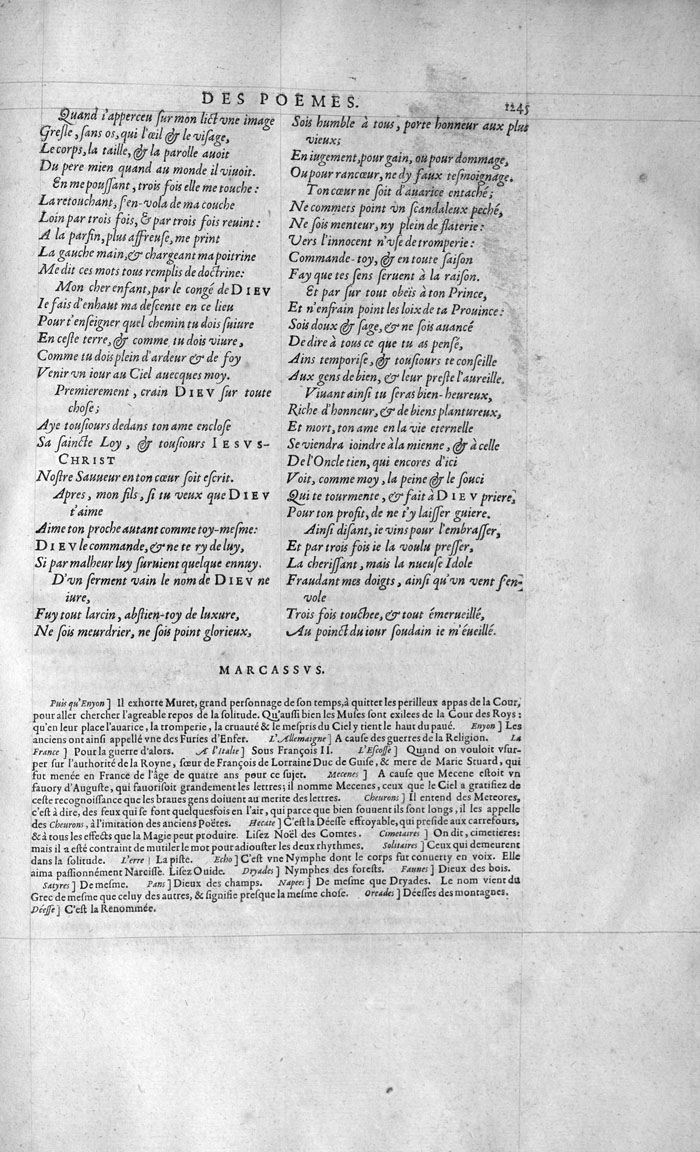 DES POEMES.
1245
Quand i'apperceu sur mon lict vne image
Gresle, sans os, qui l'œil & le visage,
Le corps, la taille, & la parolle auoit
Du pere mien quand au monde il viuoit.
En me poussant, trois fois elle me touche:
La retouchant, s'en-vola de ma couche
Loin par trois fois, & par trois fois reuint:
A la parfin, plus affreuse, me print
La gauche main, & chargeant ma poitrine
Me dit ces mots tous remplis de doctrine:
Mon cher enfant, par le congé de DIEV
Ie fais d'enhaut ma descente en ce lieu
Pour t'enseigner quel chemin tu dois suiure
En ceste terre, & comme tu dois viure,
Comme tu dois plein d'ardeur & de foy
Venir vn iour au Ciel auecques moy.
Premierement, crain DIEV sur toute
chose;
Aye tousiours dedans ton ame enclose
Sa saincte Loy, & tousiours IESVS-
CHRIST
Nostre Sauueur en ton cœur soit escrit.
Apres, mon fils, si tu veux que DIEV
t'aime
Aime ton proche autant comme toy-mesme:
DIEV le commande, & ne te ry de luy,
Si par malheur luy suruient quelque ennuy.
D'vn serment vain le nom de DIEV ne
iure,
Fuy tout larcin, abstien-toy de luxure,
Ne sois meurdrier, ne sois point glorieux,
Sois humble à tous, porte honneur aux plus
vieux;
En iugement, pour gain, ou pour dommage,
Ou pour rancœur, ne dy faux tesmoignage.
Ton cœur ne soit d'auarice entaché;
Ne commets point vn scandaleux peché,
Ne sois menteur, ny plein de flaterie:
Vers l'innocent n'vse de tromperie:
Commande-toy, & en toute saison
Fay que tes sens seruent à la raison.
Et par sur tout obeïs à ton Prince,
Et n'enfrain point les loix de ta Prouince:
Sois doux & sage, & ne sois auancé
De dire à tous ce que tu as pensé,
Ains temporise, & tousiours te conseille
Aux gens de bien, & leur preste l'aureille.
Viuant ainsi tu seras bien-heureux,
Riche d'honneur, & de biens plantureux,
Et mort, ton ame en la vie eternelle
Se viendra ioindre à la mienne, & à celle
De l'Oncle tien, qui encores d'ici
Voit, comme moy, la peine & le souci
Qui te tourmente, & fait à DIEV priere,
Pour ton profit, de ne t'y laisser guiere.
Ainsi disant, ie vins pour l'embrasser,
Et par trois fois ie la voulu presser,
La cherissant, mais la nueuse Idole
Fraudant mes doigts, ainsi qu'vn vent s'en-
vole
Trois fois touchee, & tout émerueillé,
Au poinct du iour soudain ie m'éueillé.
MARCASSVS.
Puis qu'Enyon] Il exhorte Muret, grand personnage de son temps, à quitter les périlleux appas de la Cour,
pour aller chercher l'agreable repos de la solitude. Qu'aussi bien les Muses sont exilees de la Cour des Roys:
qu'en leur place l'auarice, la tromperie, la cruauté & le mespris du Ciel y tient le haut du paué. Enyon] Les
anciens ont ainsi appellé vne des Furies d'Enfer. L'Allemaigne] A cause des guerres de la Religion. La
France] Pour la guerre d'alors. A l'Italie] Sous François II. L'Escosse] Quand on vouloit vsur-
per sur l'authorité de la Royne, sœur de François de Lorraine Duc de Guise, & mere de Marie Stuard, qui
fut menée en France de l'âge de quatre ans pour ce sujet. Mecenes] A cause que Mecene estoit vn
fauory d'Auguste, qui fauorisoit grandement les lettres; il nomme Mecenes, ceux que le Ciel a gratifiez de
ceste recognoissance que les braues gens doiuent au merite des lettres. Cheurons] Il entend des Meteores,
c'est à dire, des feux qui se font quelquesfois en l'air, qui parce que bien souuent ils sont longs, il les appelle
des Cheurons, à l'imitation des anciens Poëtes. Hecate] C'est la Déesse effroyable, qui preside aux carrefours,
& à tous les effects que la Magie peut produire. Lisez Noël des Comtes. Cimetaires] On dit, cimetieres:
mais il a esté contraint de mutiler le mot pour adiouster les deux rhythmes. Solitaires] Ceux qui demeurent
dans la solitude. L'erre] La piste. Echo] C'est vne Nymphe dont le corps fut conuerty en voix. Elle
aima passionnément Narcisse. Lisez Ouide. Dryades] Nymphes des forests. Faunes] Dieux des bois.
Satyres] De mesme. Pans] Dieux des champs. Napees] De mesme que Dryades. Le nom vient du
Grec de mesme que celuy des autres, & signifie presque la mesme chose. Oreades] Déesses des montagnes.
Déesse] C'est la Renommée.